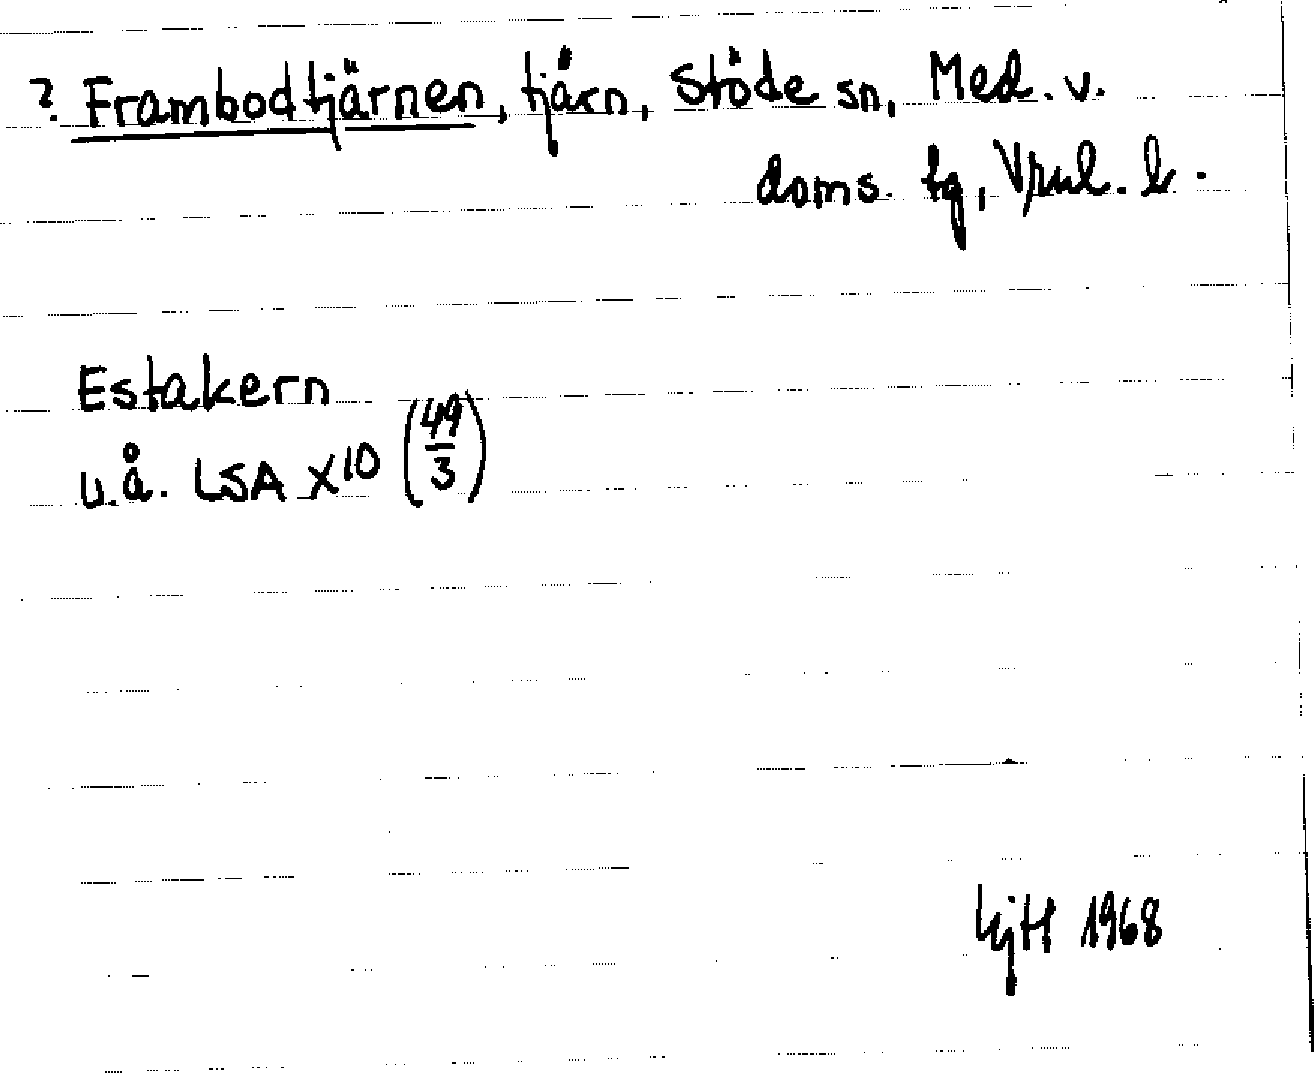 ? Frambodtjärnen, tjärn, Stöde sn, Med. v.
doms. tg, Vrnl. l.
Estakern
u.å. LSA X10 (49/3)
HjH 1968